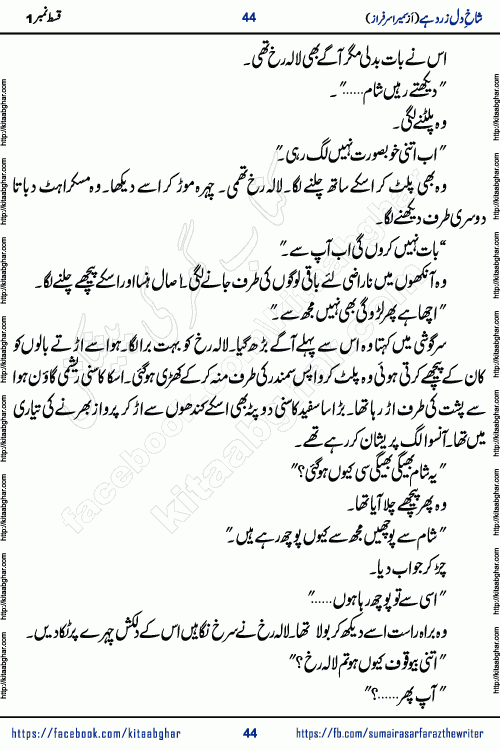 شاخِ دل زرد ہے (از سمیرا سرفراز) 44 قسط نمبر 1
اس نے بات بدلی مگر آگے بھی لالہ رخ تھی۔
"دیکھتے رہیں شام......"۔
وہ پلٹنے لگی۔
"اب اتنی خوبصورت نہیں لگ رہی۔"
وہ بھی پلٹ کر اسکے ساتھ چلنے لگا۔ لالہ رخ تھمی۔ چہرہ موڑ کر اسے دیکھا۔ وہ مسکراہٹ دباتا
دوسری طرف دیکھنے لگا۔
"بات نہیں کروں گی اب آپ سے۔"
وہ آنکھوں میں ناراضی لئے باقی لوگوں کی طرف جانے لگی۔ صال ہنسا اور اسکے پیچھے چلنے لگا۔
"اچھا ہے پھر لڑو گی بھی نہیں مجھ سے۔"
سرگوشی میں کہتا وہ اس سے پہلے آگے بڑھ گیا۔ لالہ رخ کو بہت برا لگا۔ ہوا سے اڑتے بالوں کو
کان کے پیچھے کرتی ہوئی وہ پلٹ کر واپس سمندر کی طرف منہ کر کے کھڑی ہو گئی۔ اسکا کاسنی ریشمی گاؤن ہوا
سے پشت کی طرف اڑ رہا تھا۔ بڑا سا سفید کاسنی دوپٹہ بھی اسکے کندھوں سے اڑ کر پرواز بھرنے کی تیاری
میں تھا۔ آنسو الگ پریشان کر رہے تھے۔
"یہ شام بھیگی بھیگی سی کیوں ہو گئی؟"
وہ پھر پیچھے چلا آیا تھا۔
"شام سے پوچھیں مجھ سے کیوں پوچھ رہے ہیں۔"
چڑ کر جواب دیا۔
"اسی سے تو پوچھ رہا ہوں......"
وہ براہ راست اسے دیکھ کر بولا تھا۔ لالہ رخ نے سرخ نگاہیں اس کے دلکش چہرے پر ٹکا دیں۔
"اتنی بیوقوف کیوں ہو تم لالہ رخ؟"
"آپ پھر......؟"
https://facebook.com/kitaabghar 44 https://fb.com/sumairasarfarazthewriter
http://kitaabghar.com
kitaabghar
facebook
کتاب گھر کی پیشکش